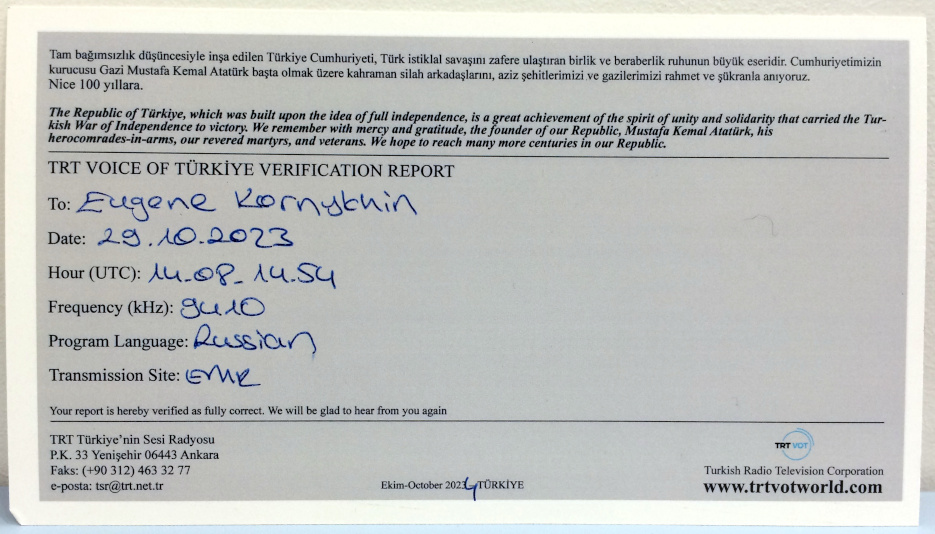 Tam bağımsızlık düşüncesiyle inşa edilen Türkiye Cumhuriyeti, Türk istiklal savaşını zafere ulaştıran birlik ve beraberlik ruhunun büyük eseridir. Cumhuriyetimizin
kurucusu Gazi Mustafa Kemal Atatürk başta olmak üzere kahraman silah arkadaşlarını, aziz şehitlerimizi ve gazilerimizi rahmet ve şükranla anıyoruz.
Nice 100 yıllara.
The Republic of Türkiye, which was built upon the idea of full independence, is a great achievement of the spirit of unity and solidarity that carried the Tur-
kish War of Independence to victory. We remember with mercy and gratitude, the founder of our Republic, Mustafa Kemal Atatürk, his
herocomrades-in-arms, our revered martyrs, and veterans. We hope to reach many more centuries in our Republic.
TRT VOICE OF TÜRKİYE VERIFICATION REPORT
To: Eugene Kornykhin
Date: 29.10.2023
Hour (UTC): 14.08_14.54
Frequency (kHz): 9410
Program Language: Russian
Transmission Site: EMR
Your report is hereby verified as fully correct. We will be glad to hear from you again
TRT Türkiye'nin Sesi Radyosu
P.K. 33 Yenişehir 06443 Ankara
Faks: (+90 312) 463 32 77
e-posta: tsr@trt.net.tr
Ekim-October 2024-TÜRKİYE
TRT VOT
Turkish Radio Television Corporation
www.trtvotworld.com